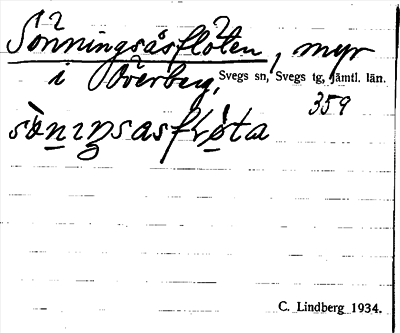 Sönningsåsflöten, myr
i Överberg, Svegs sn, Svegs tg, Jämtl. län.
359
C. Lindberg 1934.